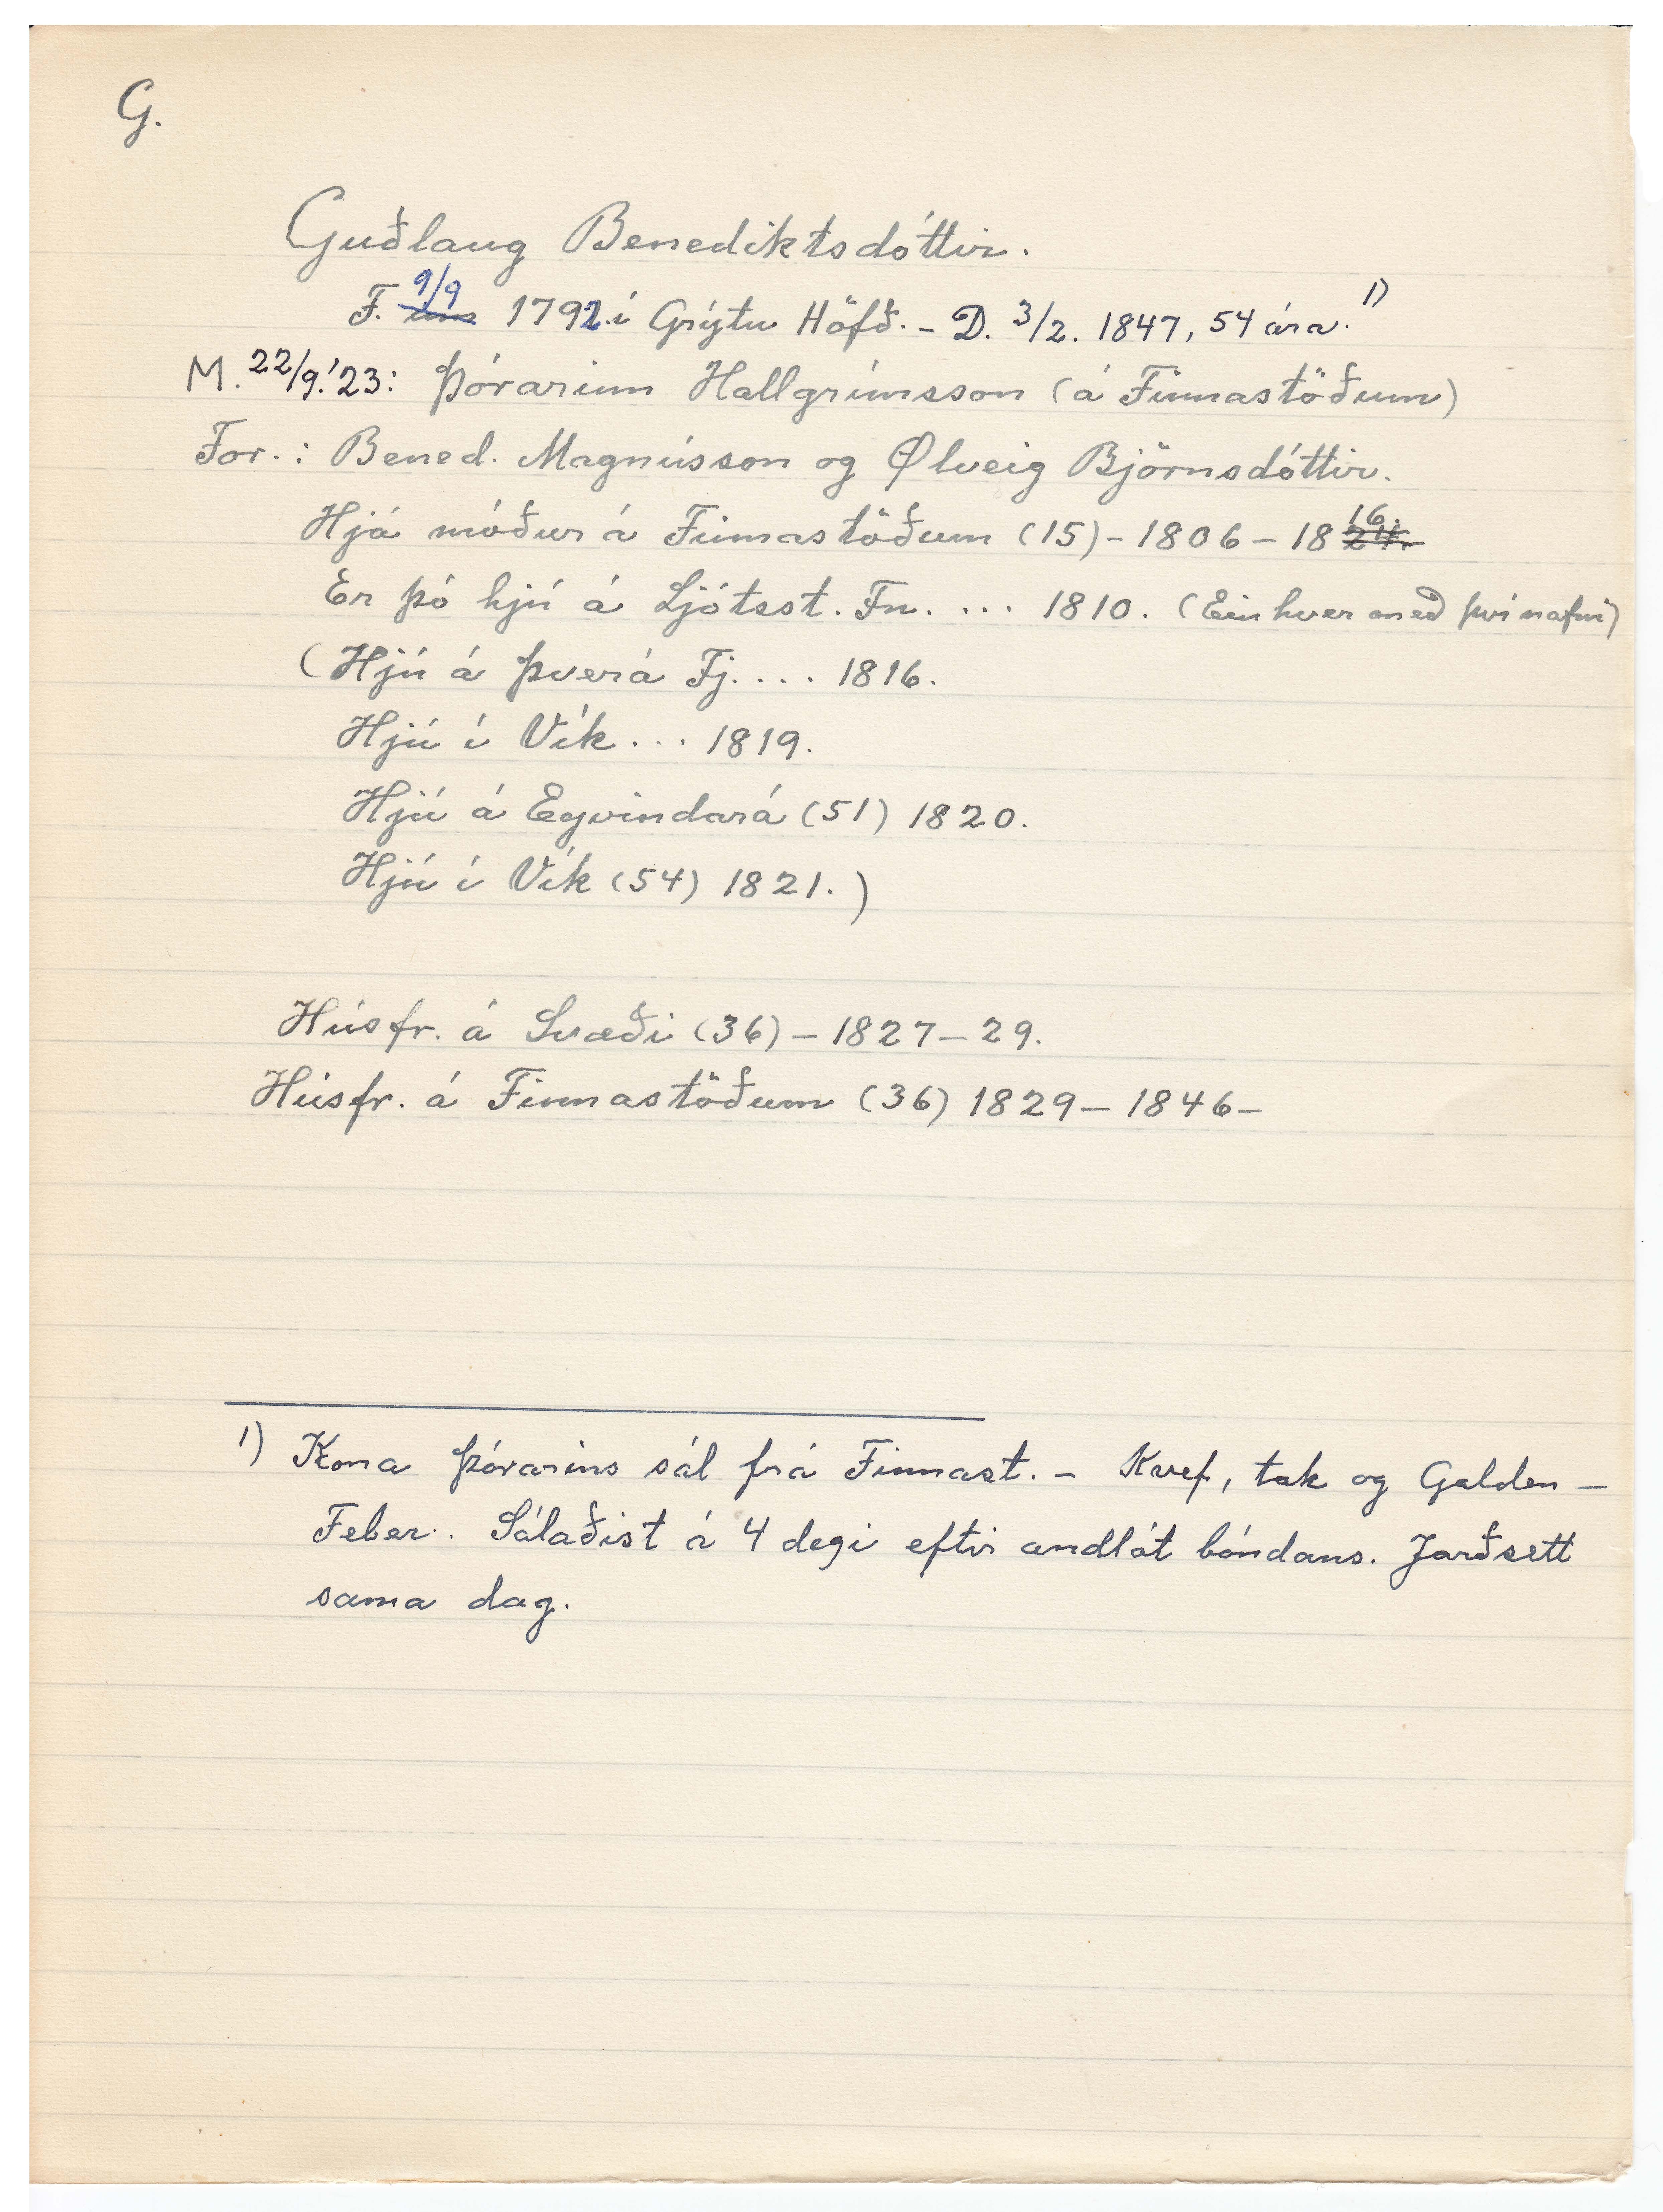 G.
Guðlaug Benediktsdóttir.
F. 9/9 1792 í Grýtu Höfð. - D. 3/2. 1847, 54 ára. 1)
M. 22/9.'23: Þórarinn Hallgrímsson (á Finnastöðum)
For.: Bened. Magnússon og Ølveig Björnsdóttir.
Hjá móður á Finnastöðum (15) - 1806 - 1816.
Er þó hjú á Ljótsst. Fn. ... 1810. (Einhver með því nafni)
(Hjú á Þverá Fj. ... 1816.
Hjú í Vík ... 1819.
Hjú á Eyvindará (51) 1820.
Hjú í Vík (54) 1821.)
Húsfr. á Svæði (36) - 1827 - 29.
Húsfr. á Finnastöðum (36) 1829 - 1846 -
1) Kona Þórarins sál frá Finnast. - Kvef, tak og Galden -
Feber. Sálaðist á 4 degi eftir andlát bóndans. Jarðsett
sama dag.